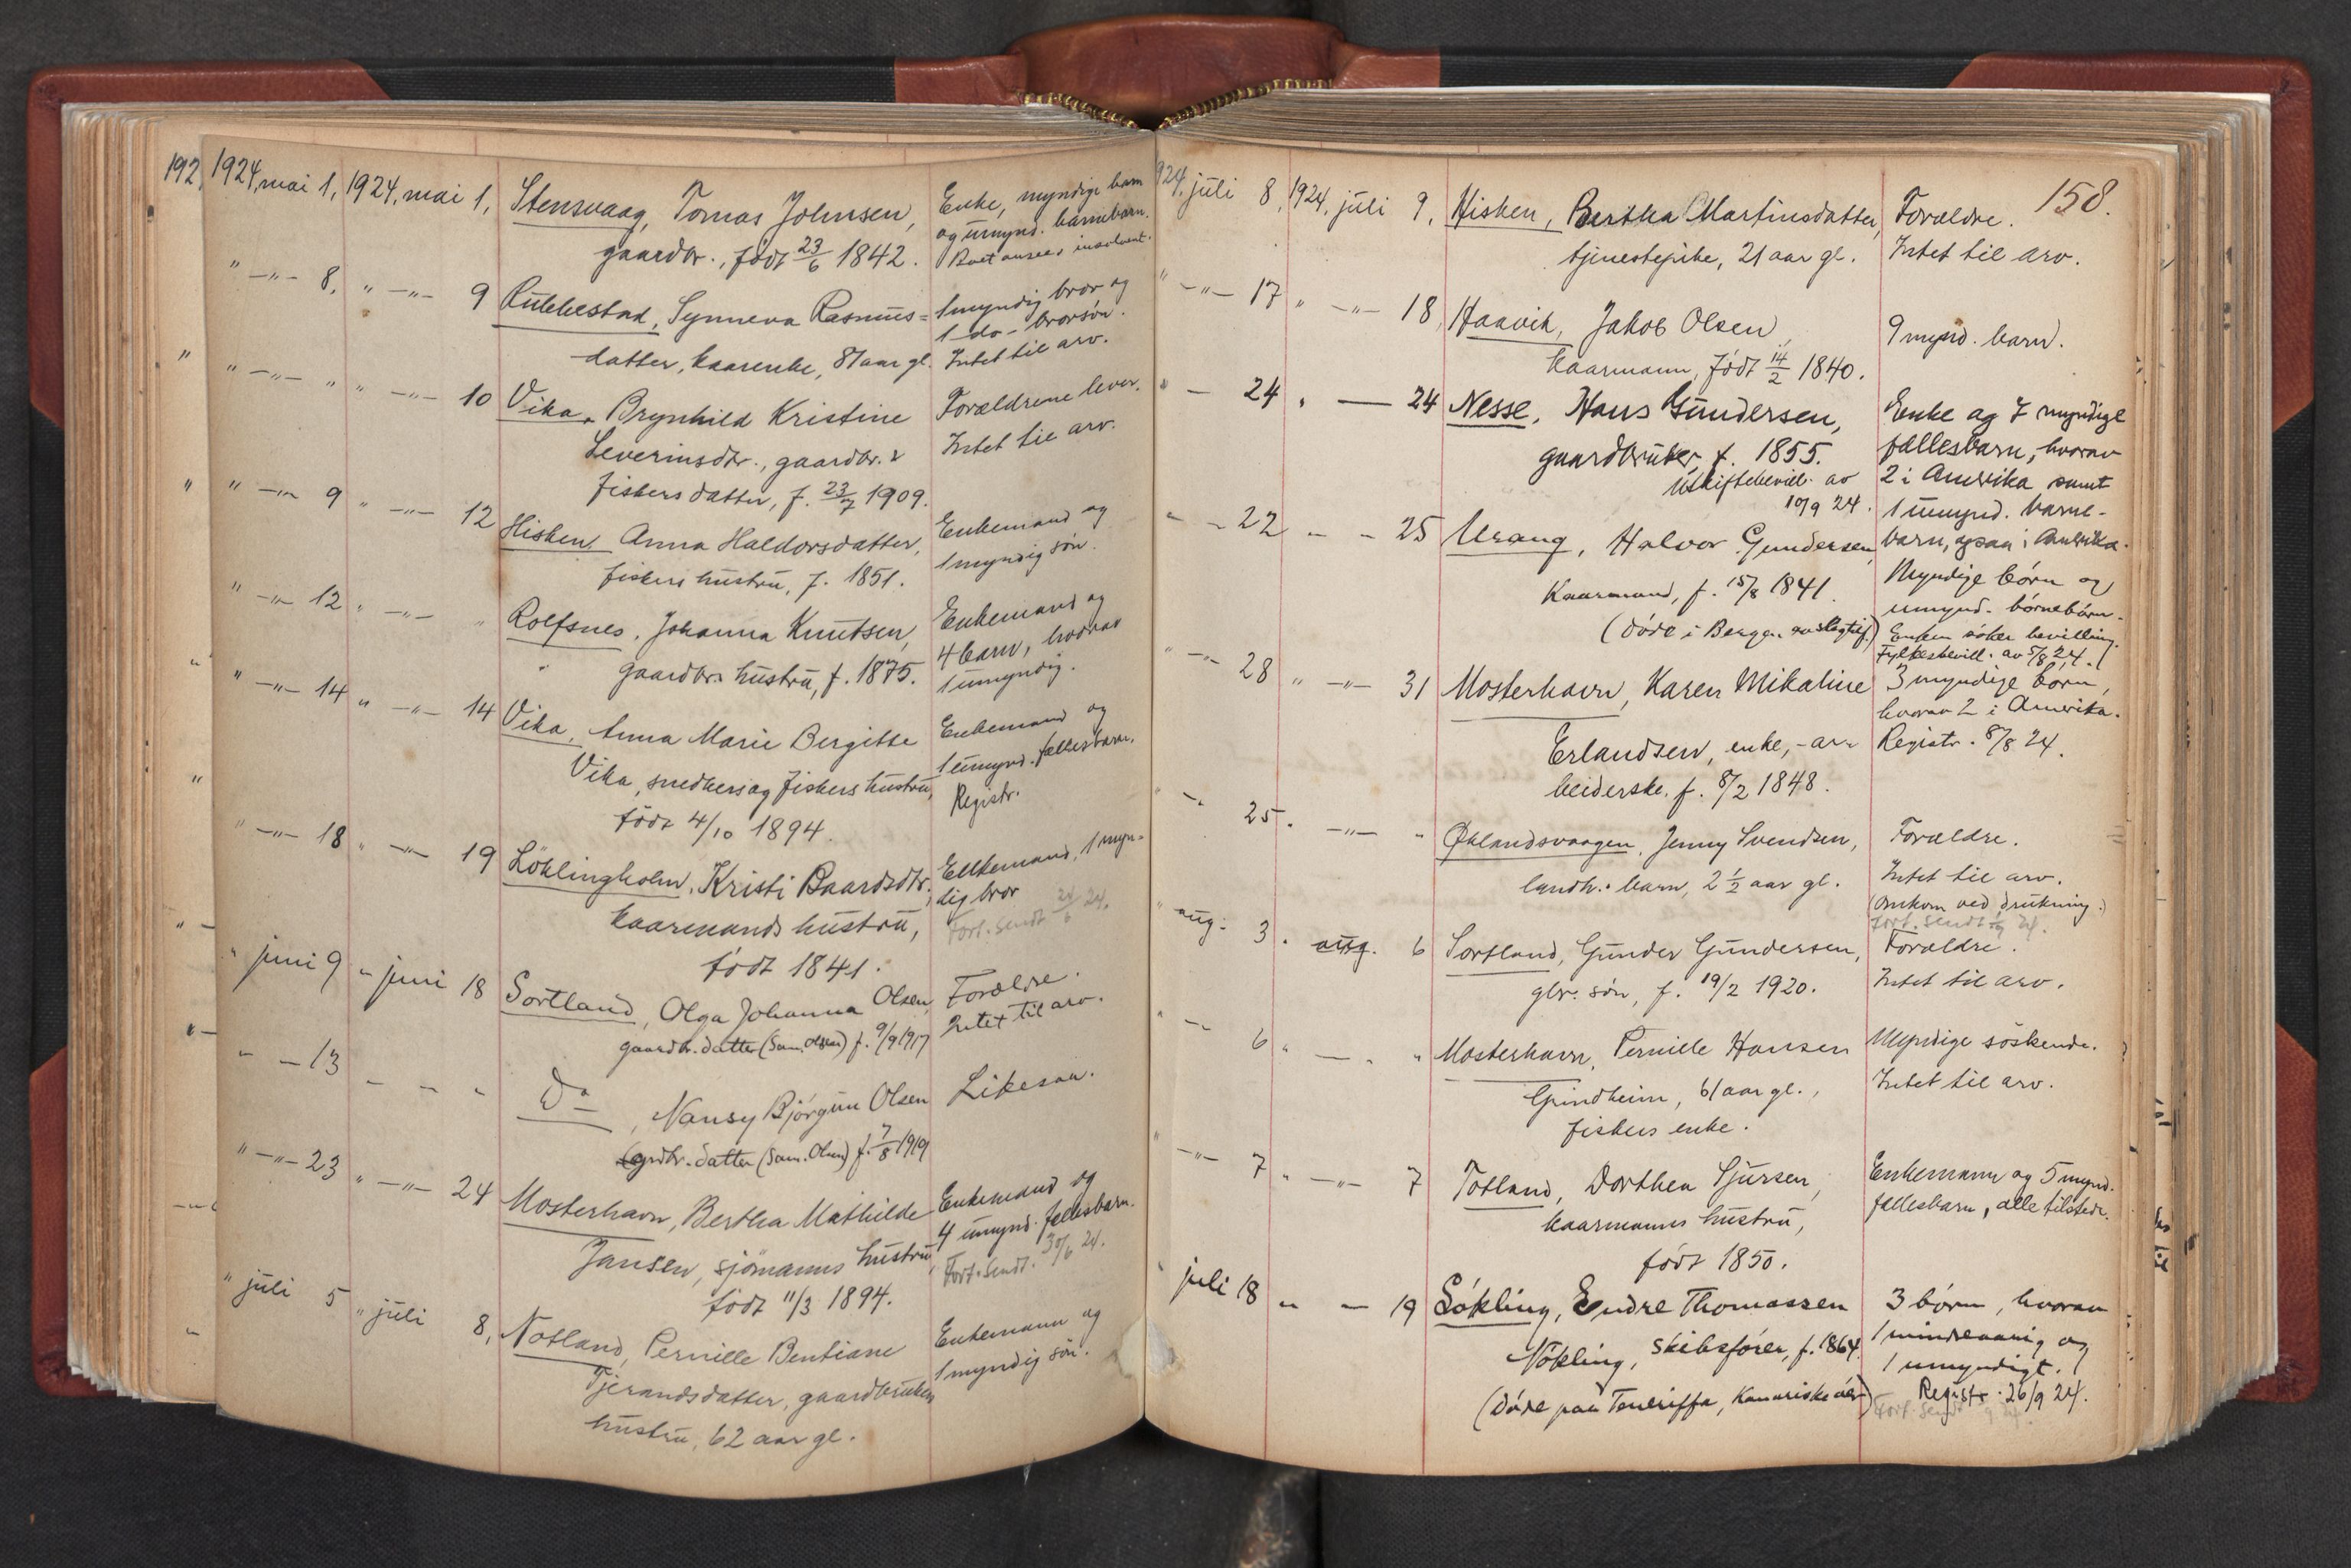 192
1924, mai 1, 1924, mai 1, Stensvaag, Tomas Johnsen, Enke, myndige barn
gaardbr., født 23/6 1842. og umynd. barnebarn.
Boet ansees insolvent.
" —"— 8, " —"— 9 Rubbestad, Synneva Rasmus= 1 myndig bror og
1 do - brorsøn.
datter, kaarenke, 81 aar gl. Intet til arv.
" —"— " " —"— 10 Vika, Brynhild Kristine Forældrene lever.
Severinsdtr., gaardbr. & Intet til arv.
fiskers datter, f. 23/7 1909.
" —"— 9 " —"— 12 Hisken, Anna Haldorsdatter, Enkemand og
fiskers hustru, f. 1851. 1 myndig søn.
" —"— 12 " —"— " Rolfsnes, Johanna Knutsen, Enkemand og
gaardbrs hustru, f. 1875. 4 barn, hvorav
1 umyndig.
" —"— 14 " —"— 14 Vika, Anna Marie Bergitte Enkemand og
Vika, snedkers og fiskers hustru, 1 umynd. fællesbarn.
født 4/10 1894. Registr.
" —"— 18 " —"— 19 Løklingholm, Kristi Baardsdtr., Enkemand, 1 myn=
kaarmands hustru, dig bror
født 1841. Fort. sendt 24/6 24.
" juni 9 " juni 18 Sortland, Olga Johanna Olsen, Forældre.
gaardbr. datter (Sam. Olsen) f. 9/9 1917 Intet til arv.
" — 13 — — " Do, Nansy Bjørgun Olsen Likesaa.
grdbr. datter (Sam. Olsen) f. 7/8 1919
" —"— 23 " —"— 24 Mosterhavn, Bertha Mathilde Enkemand og
Jansen, sjømanns hustru, 4 umynd. fællesbarn.
født 11/3 1894. Fort. sendt. 30/6 24.
" juli 5 " juli 8, Notland, Pernille Bentiane Enkemann og
Tjerandsdatter, gaardbrukers 1 myndig søn.
hustru, 62 aar gl.
158.
924, juli 8, 1924, juli 9, Hisken, Bertha Martinsdatter, Forældre.
tjenestepike, 21 aar gl. Intet til arv.
" —"— 17 " —"— 18, Haavik, Jakob Olsen, 9 mynd. barn.
kaarmann, født 14/2 1840.
" — 24 " — 24 Nesse, Hans Gundersen, Enke og 7 myndige
gaardbruker, f. 1855. fællesbarn, hvorav
Uskiftebevill. av 2 i Amerika samt
10/9 24. 1 umynd. barne-
barn, ogsaa i Amerika.
" — 22 — — 25 Urang, Halvor Gundersen, Myndige børn og
Kaarmand, f. 15/8 1841. umynd. børnebørn.
(døde i Bergen Enken søker bevilling.
Fylkesbevill. av 5/8 24.
" —"— 28 " —"— 31 Mosterhavn, Karen Mikaline 3 myndige børn,
hvorav 2 i Amerika.
Erlandsen, enke, - ar= Registr. 8/8 24.
beiderske, f. 8/2 1848.
" 25. —"— " Øklandsvaagen, Jenny Svendsen, Forældre.
landh. barn, 2 1/2 aar gl. Intet til arv.
(Omkom ved drukning.)
aug. 3. aug. 6 Sortland, Gunder Gundersen, Forældre.
gbr. søn, f. 19/2 1920. Intet til arv.
" 6 " — " " Mosterhavn, Pernille Hansen Myndige søskende.
Grindheim, 61 aar gl., Intet til arv.
fiskers enke.
" —"— 7 " —"— 7 Totland, Dorthea Sjursen, Enkemann og 5 mynd.
kaarmanns hustru, fællesbarn, alle tilstede.
født 1850.
juli 18 " — 19 Løkling, Endre Thomassen 3 børn, hvorav
Nøkling, skibsfører, f. 1864. 1 mindreaarig og
1 umyndigt.
(døde paa Teneriffa, Kanariske øer) Registr. 26/9 24.